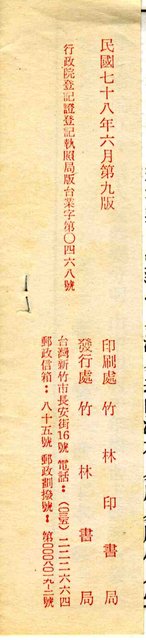 民國七十八年六月第九版
行政院登記證登記執照局版台業字第〇四六八號
印刷處 竹林印書局
發行處 竹林書局
台灣新竹市長安街16號 電話：(〇三五)二二二六六四
郵政信箱：八十五號 郵政劃撥號：第〇〇〇八〇一九－二號